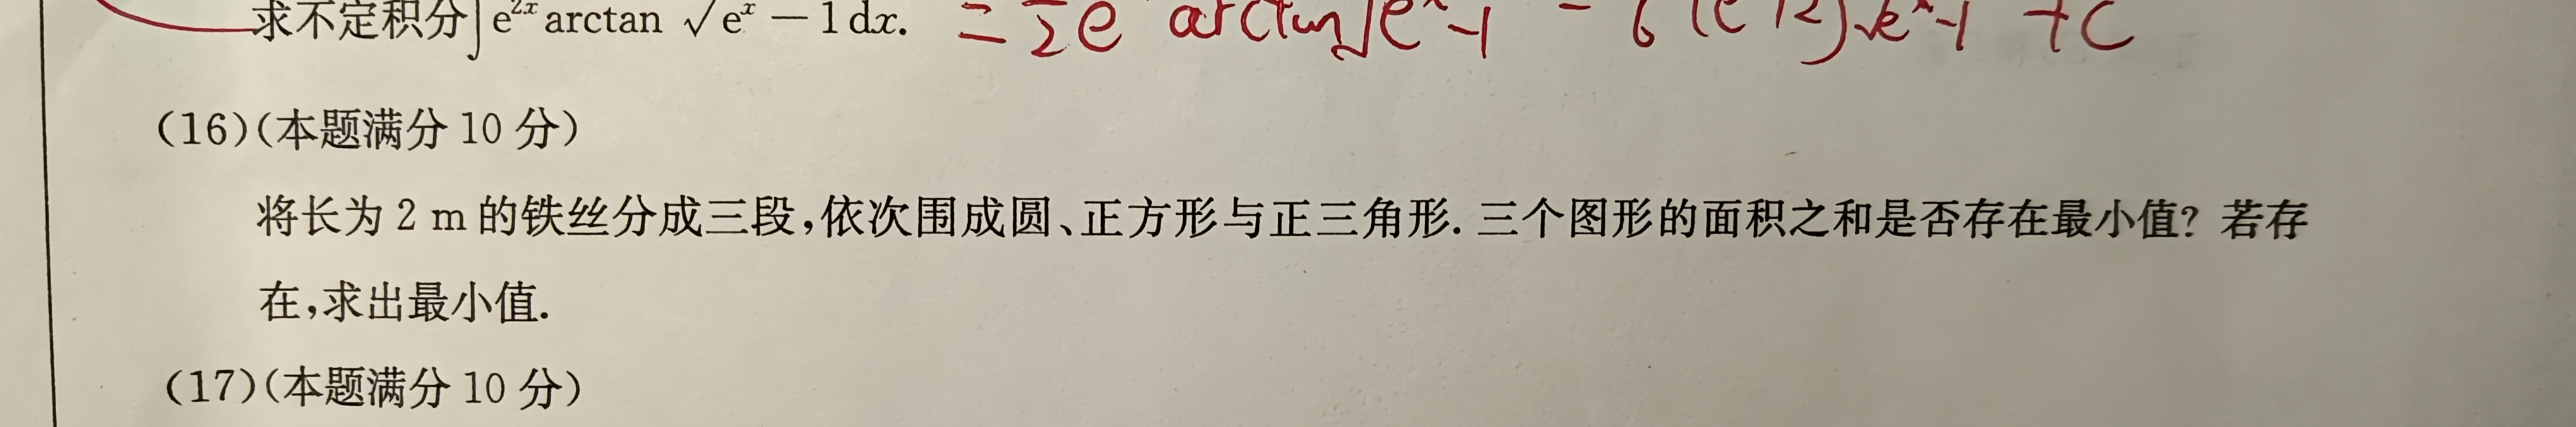 求不定积分∫e^{2x} arctan √e^x − 1 dx. = 1/2 e arctan√e^x-1 - 6 (e +2)√e^x-1 + C
(16)(本题满分 10 分)
将长为 2 m 的铁丝分成三段,依次围成圆、正方形与正三角形. 三个图形的面积之和是否存在最小值? 若存
在,求出最小值.
(17)(本题满分 10 分)